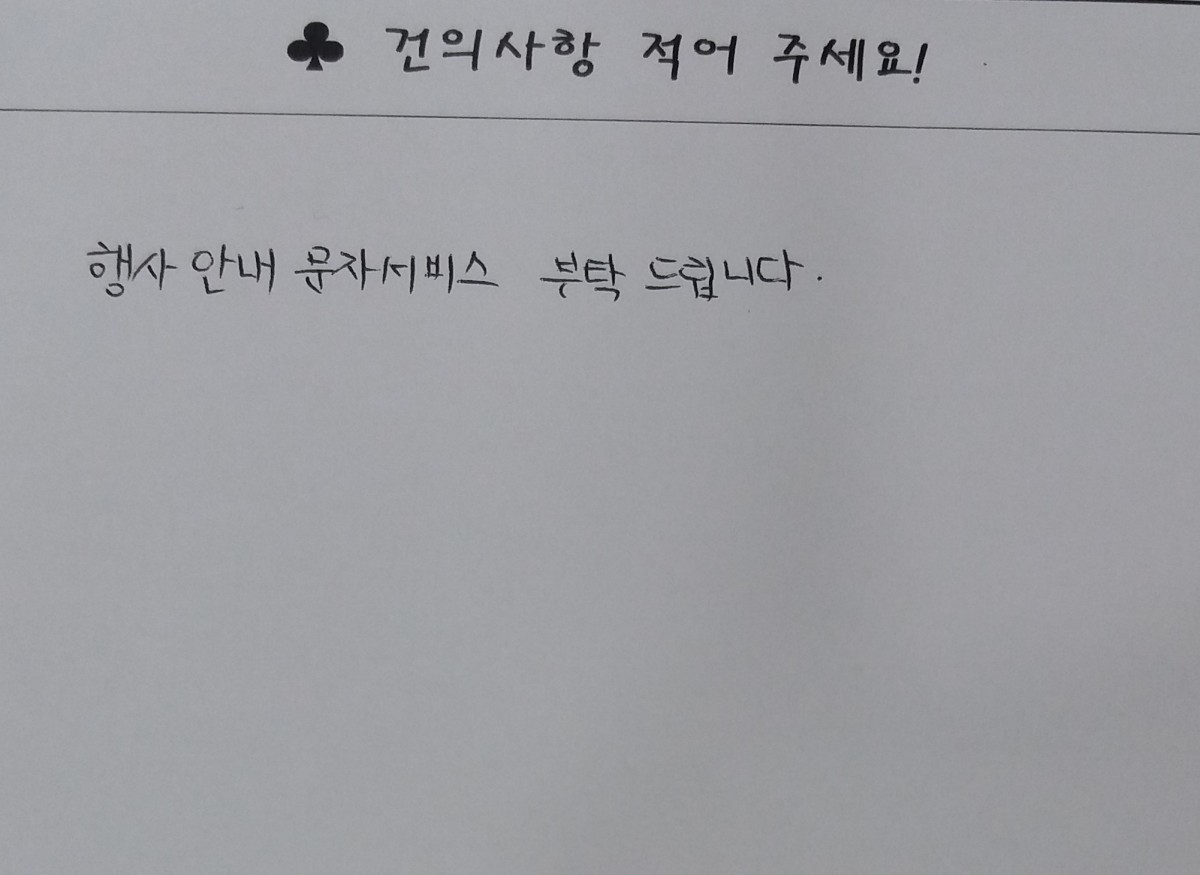 ♣ 건의사항 적어 주세요!
행사 안내 문자서비스 부탁 드립니다.